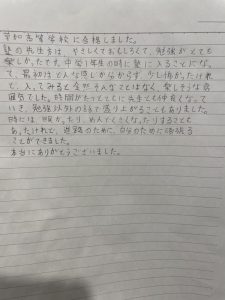 草加高等学校に合格しました。
塾の先生方は、やさしくておもしろくて、勉強がとても
楽しかったです。中学1年生の時に塾に入ることにな
って、最初はどんな感じか分からず、少し怖かったけれ
ど、入ってみると全然そんなことはなく、楽しそうな雰
囲気でした。時間がたつとともに先生とも仲良くなって
いき、勉強以外の話で盛り上がることもありました。
時には、眠かったり、めんどくさくなったりすることも
あったけれど、進路のために、自分のために頑張る
ことができました。
本当にありがとうございました。